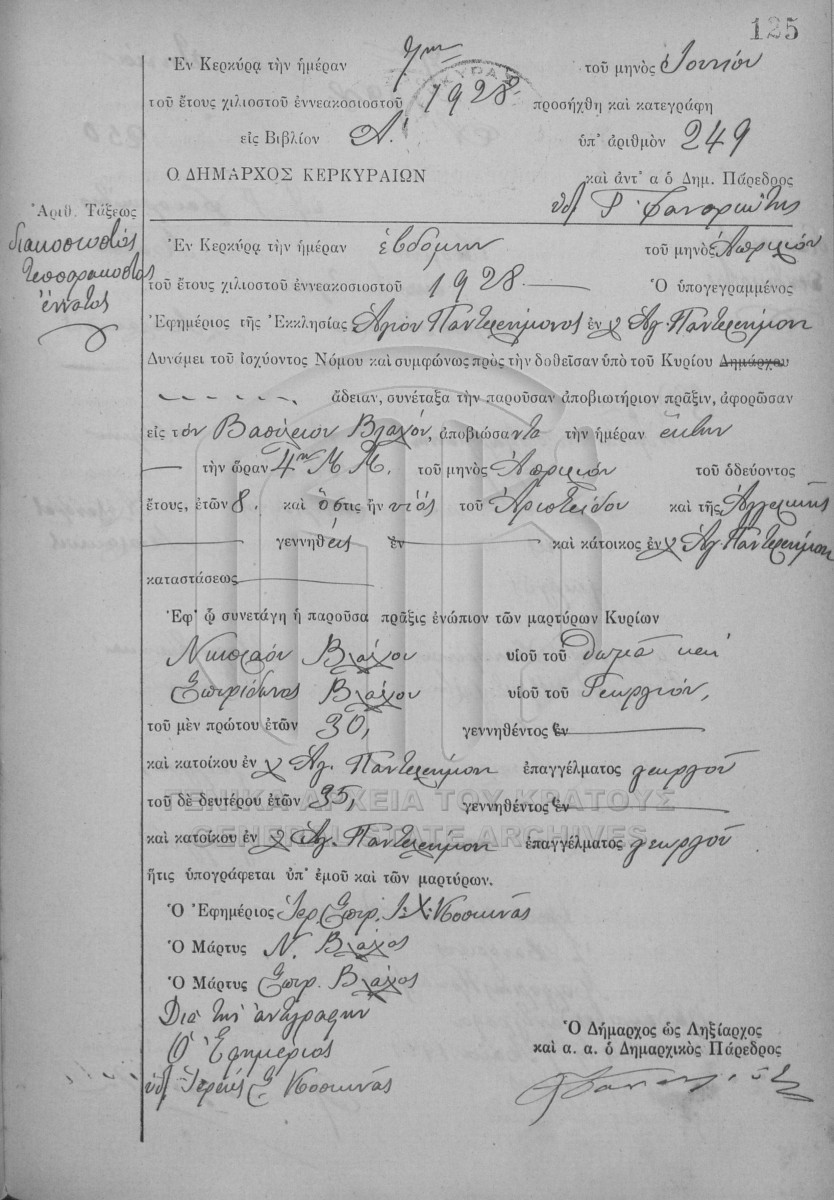 125
Ἐν Κερκύρᾳ τὴν ἡμέραν 7ην τοῦ μηνὸς Ἰουνίου
τοῦ ἔτους χιλιοστοῦ ἐννεακοσιοστοῦ 1928 προσήχθη καὶ κατεγράφη
εἰς Βιβλίον Α΄ ὑπ' ἀριθμὸν 249
Ο ΔΗΜΑΡΧΟΣ ΚΕΡΚΥΡΑΙΩΝ καὶ ἀντ' α ὁ Δημ. Πάρεδρος
Ἀριθ. Τάξεως
διακοσιοστός
τεσσαρακοστός
ἔννατος
Ἐν Κερκύρᾳ τὴν ἡμέραν ἑβδόμην τοῦ μηνὸς Ἀπριλίου
τοῦ ἔτους χιλιοστοῦ ἐννεακοσιοστοῦ 1928 Ὁ ὑπογεγραμμένος
Ἐφημέριος τῆς Ἐκκλησίας Ἁγίου Παντελεήμονος ἐν χ Ἁγ. Παντελεήμονι
Δυνάμει τοῦ ἰσχύοντος Νόμου καὶ συμφώνως πρὸς τὴν δοθεῖσαν ὑπὸ τοῦ Κυρίου Δημάρχου
ἄδειαν, συνέταξα τὴν παροῦσαν ἀποβιωτήριον πρᾶξιν, ἀφορῶσαν
εἰς τὸν Βασίλειον Βλάχον, ἀποβιώσαντα τὴν ἡμέραν ἕκτην
τὴν ὥραν 4ην Μ.Μ. τοῦ μηνὸς Ἀπριλίου τοῦ ὁδεύοντος
ἔτους, ἐτῶν 8. καὶ ὅστις ἦν υἱὸς τοῦ Ἀριστείδου καὶ τῆς Ἀγγελικῆς
γεννηθεὶς ἐν καὶ κάτοικος ἐν χ Ἁγ. Παντελεήμονι
καταστάσεως
Ἐφ' ᾧ συνετάγη ἡ παροῦσα πρᾶξις ἐνώπιον τῶν μαρτύρων Κυρίων
Νικολάου Βλάχου υἱοῦ τοῦ Θωμᾶ καὶ
Σπυρίδωνος Βλάχου υἱοῦ τοῦ Γεωργίου,
τοῦ μὲν πρώτου ἐτῶν 30, γεννηθέντος ἐν
καὶ κατοίκου ἐν χ Ἁγ. Παντελεήμονι ἐπαγγέλματος γεωργοῦ
τοῦ δὲ δευτέρου ἐτῶν 35, γεννηθέντος ἐν
ΓΕΝΙΚΑ ΑΡΧΕΙΑ ΤΟΥ ΚΡΑΤΟΥΣ
GENERAL STATE ARCHIVES
καὶ κατοίκου ἐν χ Ἁγ. Παντελεήμονι ἐπαγγέλματος γεωργοῦ
ἥτις ὑπογράφεται ὑπ' ἐμοῦ καὶ τῶν μαρτύρων.
Ὁ Ἐφημέριος Ἱερ. Σπυρ. Ι. Χ. Κοσκινᾶς
Ὁ Μάρτυς Ν. Βλάχος
Ὁ Μάρτυς Σπυρ. Βλάχος
Διὰ τὴν ἀντιγραφὴν
Ὁ Ἐφημέριος
Ἱερεὺς Σ. Κοσκινᾶς
Ὁ Δήμαρχος ὡς Ληξίαρχος
καὶ α. α. ὁ Δημαρχικὸς Πάρεδρος